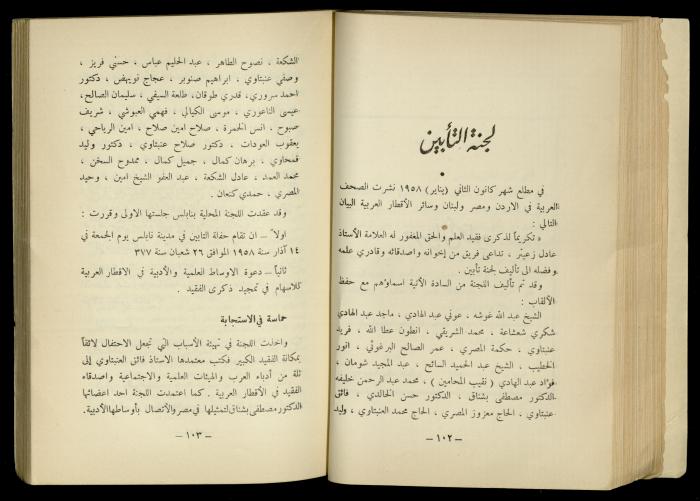 لجنة التأبين
في مطلع شهر كانون الثاني (يناير) ١٩٥٨ نشرت الصحف
العربية في الاردن ومصر ولبنان وسائر الأقطار العربية البيان
التالي :
« تكريماً لذكرى فقيد العلم والحق المغفور له العلامة الأستاذ
عادل زعيتر ، تداعى فريق من إخوانه واصدقائه وقادري علمه
وفضله الى تأليف لجنة تأبين .
وقد تم تأليف اللجنة من السادة الآتية اسماؤهم مع حفظ
الألقاب :
الشيخ عبد الله غوشه ، عوني عبد الهادي ، ماجد عبد الهادي
شكري شعشاعة ، محمد الشريقي ، انطون عطا الله ، فريد
عنبتاوي ، حكمة المصري ، عمر الصالح البرغوثي ، انور
الخطيب ، الشيخ عبد الحميد السائح ، عبد المجيد شومان ،
فؤاد عبد الهادي ( نقيب المحامين ) ، محمد عبد الرحمن خليفه
الدكتور مصطفى بشناق ، الدكتور حسن الخالدي ، فائق
عنبتاوي ، الحاج معزوز المصري ، الحاج محمد العنبتاوي ، وليد
— ١٠٢ —
الشكعة ، نصوح الطاهر ، عبد الحليم عباس ، حسني فريز ،
وصفي عنبتاوي ، ابراهيم صنوبر ، عجاج نويهض ، دكتور
احمد سروري، قدري طوقان، طلعة السيفي ، سليمان الصالح،
عيسى الناعوري ، موسى الكيالي ، فهمي العبوشي ، شريف
صبوح ، انس الحمرة ، صلاح امين صلاح ، امين الرباحي ،
يعقوب العودات ، دكتور صلاح عنبتاوي ، دكتور وليد
قمحاوي ، برهان كمال ، جميل كمال ، ممدوح السخن ،
محمد العمد ، عادل الشكعة ، عبد العفو الشيخ امين ، وحيد
المصري ، حمدي كنعان .
وقد عقدت اللجنة المحلية بنابلس جلستها الاولى وقررت :
اولاً — ان تقام حفلة التأبين في مدينة نابلس يوم الجمعة في
١٤ آذار سنة ١٩٥٨ الموافق ٢٦ شعبان سنة ٣٧٧
ثانياً — دعوة الاوساط العلمية والأدبية في الاقطار العربية
للاسهام في تمجيد ذكرى الفقيد .
حماسة في الاستجابة
واخذت اللجنة في تهيئة الأسباب التي تجعل الاحتفال لائقاً
بمكانة الفقيد الكبير فكتب معتمدها الاستاذ فائق العنبتاوي إلى
ثلة من أدباء العرب والهيئات العلمية والاجتماعية واصدقاء
الفقيد في الأقطار العربية . كما اعتمدت اللجنة احد اعضائها
الدكتور مصطفى بشناق لتمثيلها في مصر والأتصال بأوساطها الأدبية.
— ١٠٣ —